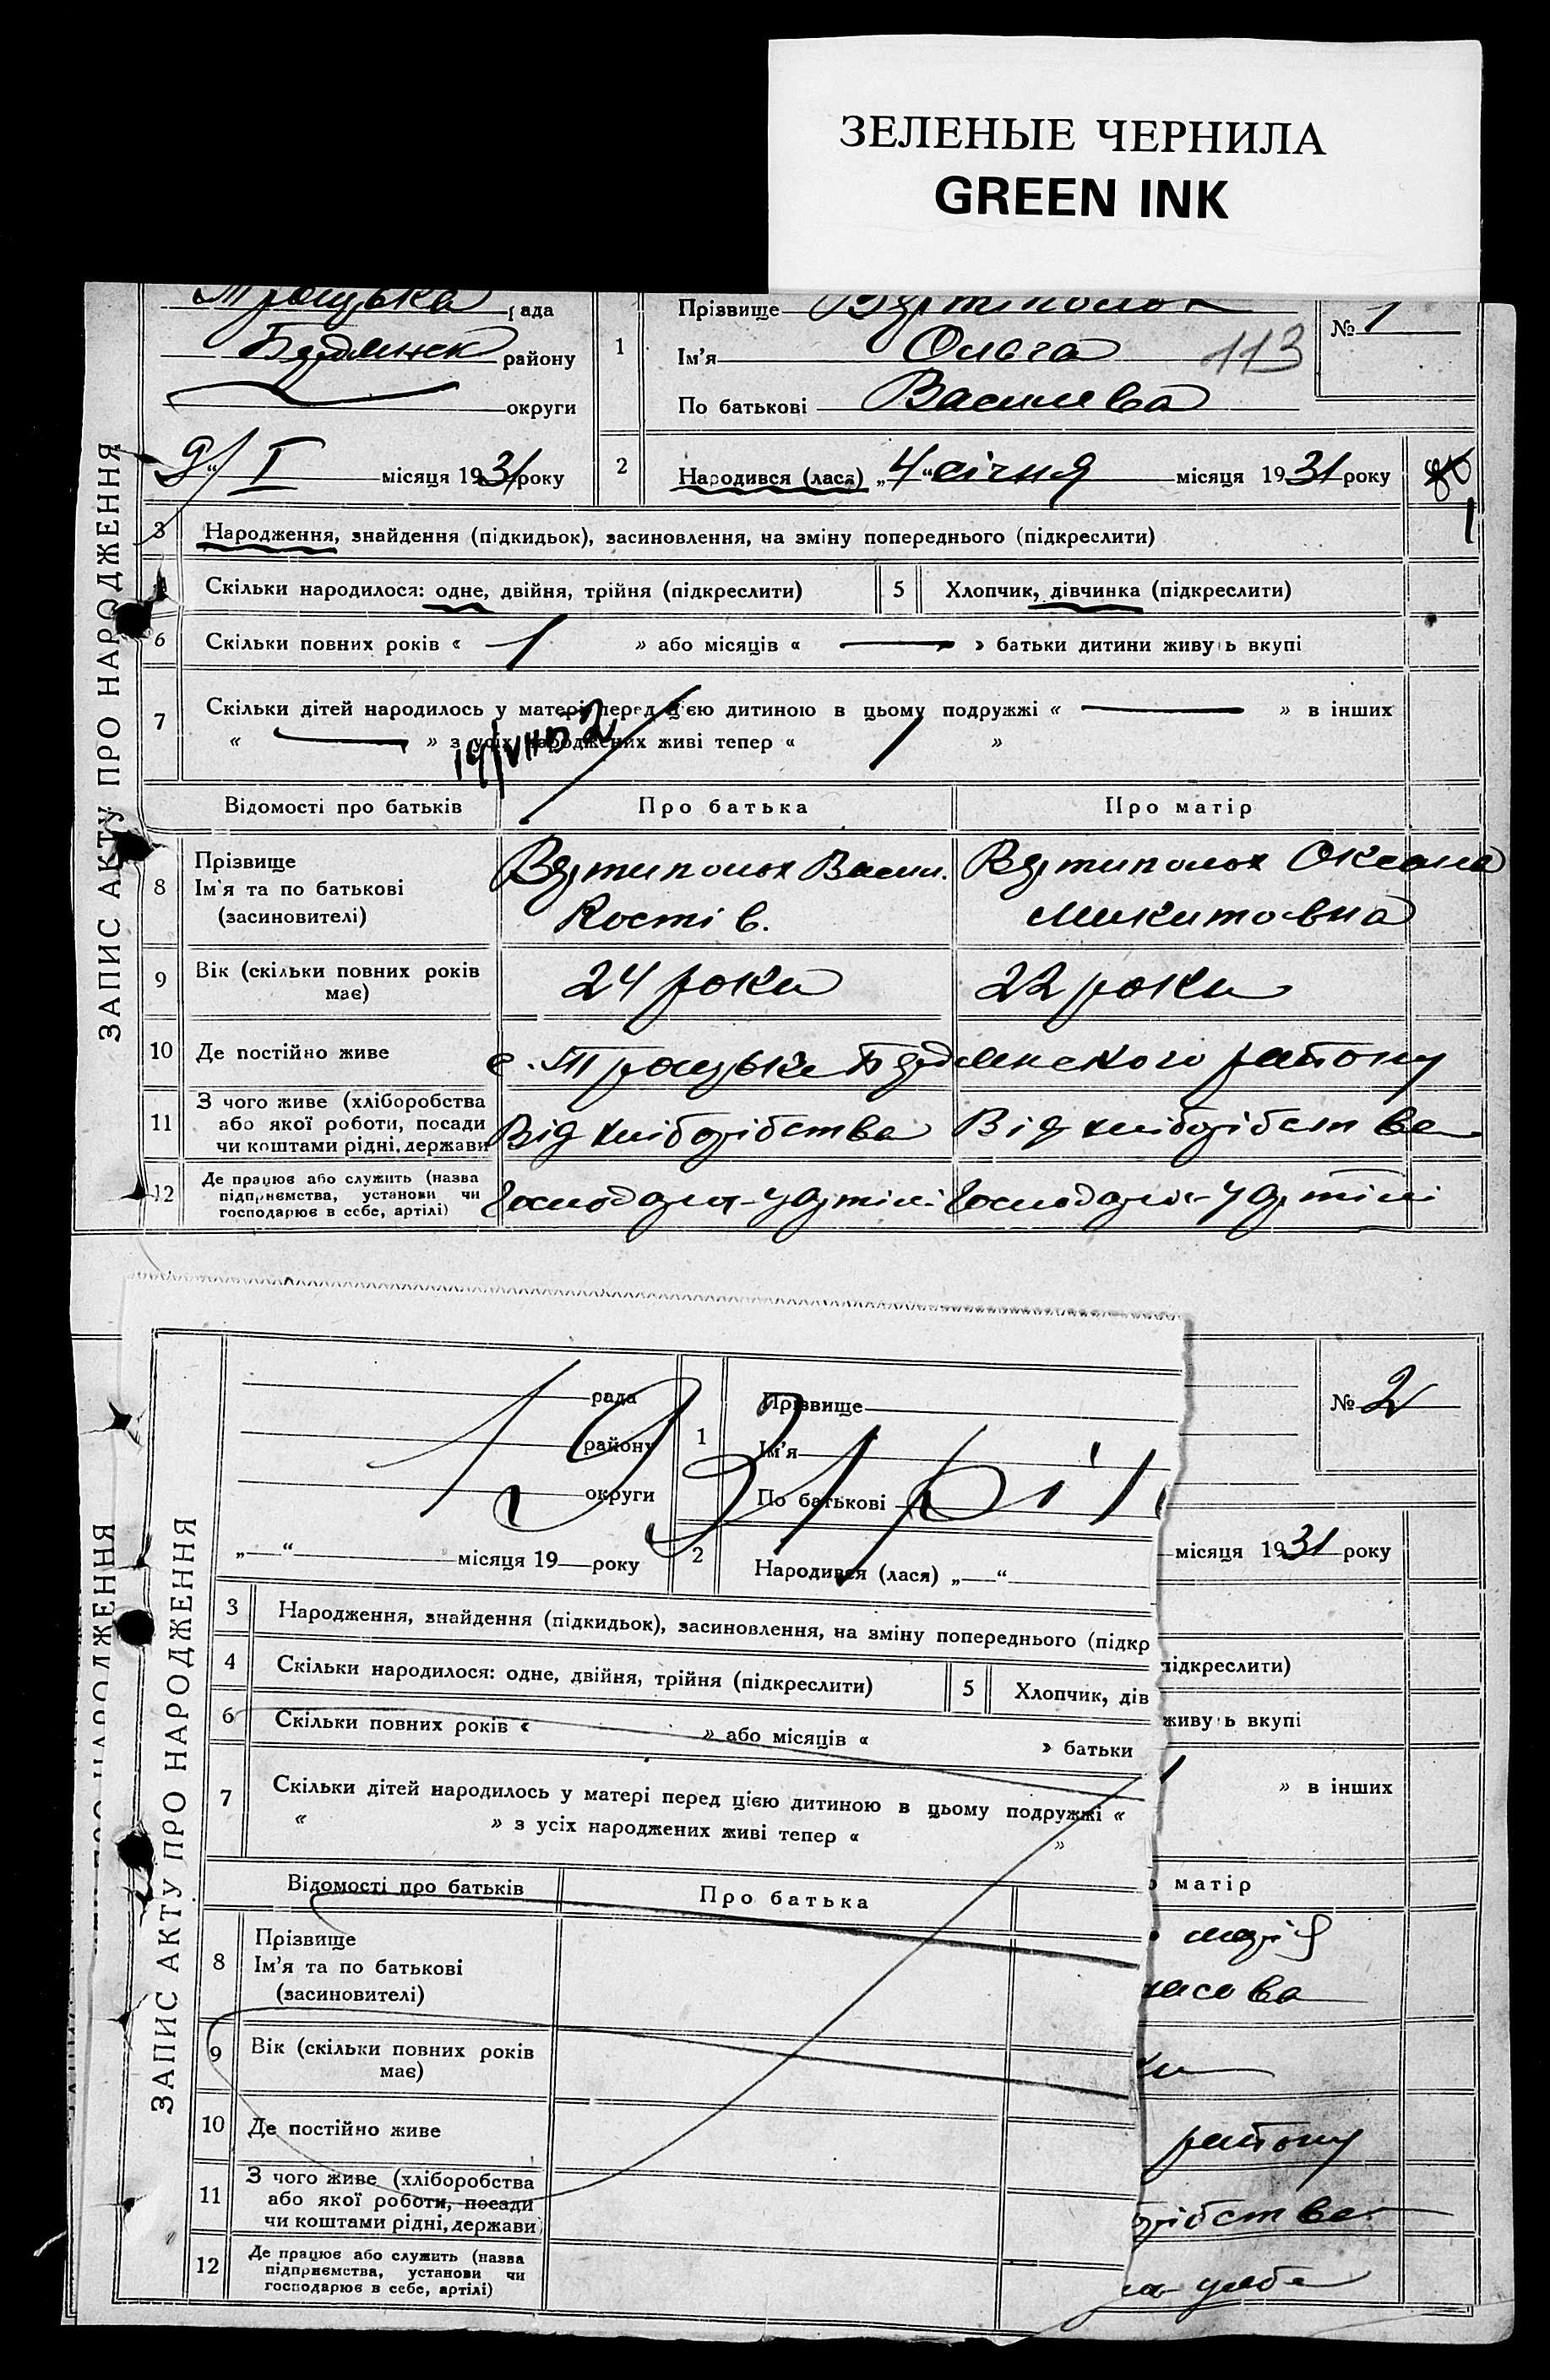 ЗЕЛЕНЫЕ ЧЕРНИЛА
GREEN INK
Троцька рада
Прізвище Вертиполох
№ 1
район у
1
Ім'я Ольга 113
округи
По батькові Василева
9 “ I місяця 1931 року
2 Народився (лася) „4“ січня місяця 1931 року
1
3 Народження, знайдення (підкидьок), засиновлення, на зміну попереднього (підкреслити)
4 Скільки народилося: одне, двійня, трійня (підкреслити) 5 Хлопчик, дівчинка (підкреслити)
6 Скільки повних років « 1 » або місяців « — » батьки дитини живуть вкупі
7 Скільки дітей народилось у матері перед цією дитиною в цьому подружжі « — » в інших
« — » з усіх народжених живі тепер « 1 »
Відомості про батьків Про батька Про матір
8 Прізвище
Ім'я та по батькові
(засиновителі)
Вертиполох Васил. Вертиполох Оксана
Костів. Микитовна
9 Вік (скільки повних років має) 24 роки 22 роки
10 Де постійно живе с. Троцьке районy
11 З чого живе (хліборобства
або якої роботи, посади
чи коштами рідні, держави
Від хліборобства Від хліборобства
12 Де працює або служить (назва
підприємства, установи чи
господарює в себе, артілі)
Господарює у артілі Господарює у артілі
ЗАПИС АКТУ ПРО НАРОДЖЕННЯ
1931 рік
рада
1 Прізвище
№ 2
району
Ім'я
округи
По батькові
„ “ місяця 19 року
2 Народився (лася) „ “
місяця 1931 року
3 Народження, знайдення (підкидьок), засиновлення, на зміну попереднього (підкр
4 Скільки народилося: одне, двійня, трійня (підкреслити) 5 Хлопчик, дів
підкреслити)
6 Скільки повних років « » або місяців « » батьки
живуть вкупі
7 Скільки дітей народилось у матері перед цією дитиною в цьому подружжі «
» в інших
« » з усіх народжених живі тепер « »
Відомості про батьків Про батька
матір
8 Прізвище
Ім'я та по батькові
(засиновителі)
9 Вік (скільки повних років
має)
10 Де постійно живе
району
11 З чого живе (хліборобства
або якої роботи, посади
чи коштами рідні, держави
12 Де працює або служить (назва
підприємства, установи чи
господарює в себе, артілі)
ЗАПИС АКТУ ПРО НАРОДЖЕННЯ